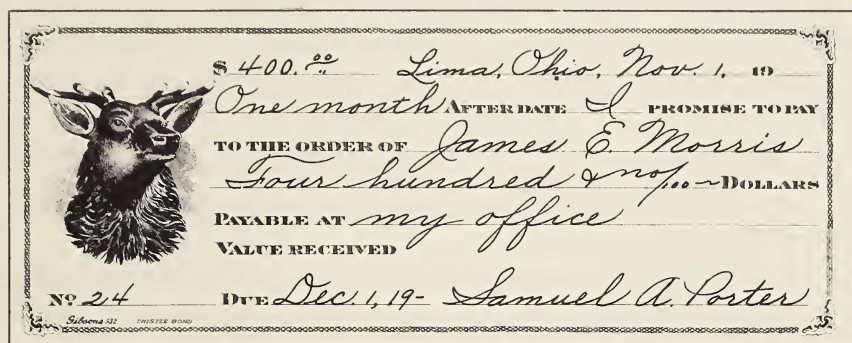 $ 400.00 Lima, Ohio, Nov. 1, 19
One month AFTER DATE I PROMISE TO PAY
TO THE ORDER OF James E. Morris
Four hundred & no/100 ~ DOLLARS
PAYABLE AT my office
VALUE RECEIVED
No 24 DUE Dec. 1, 19- Samuel A. Porter
Gibsons 532 THISTLE BOND